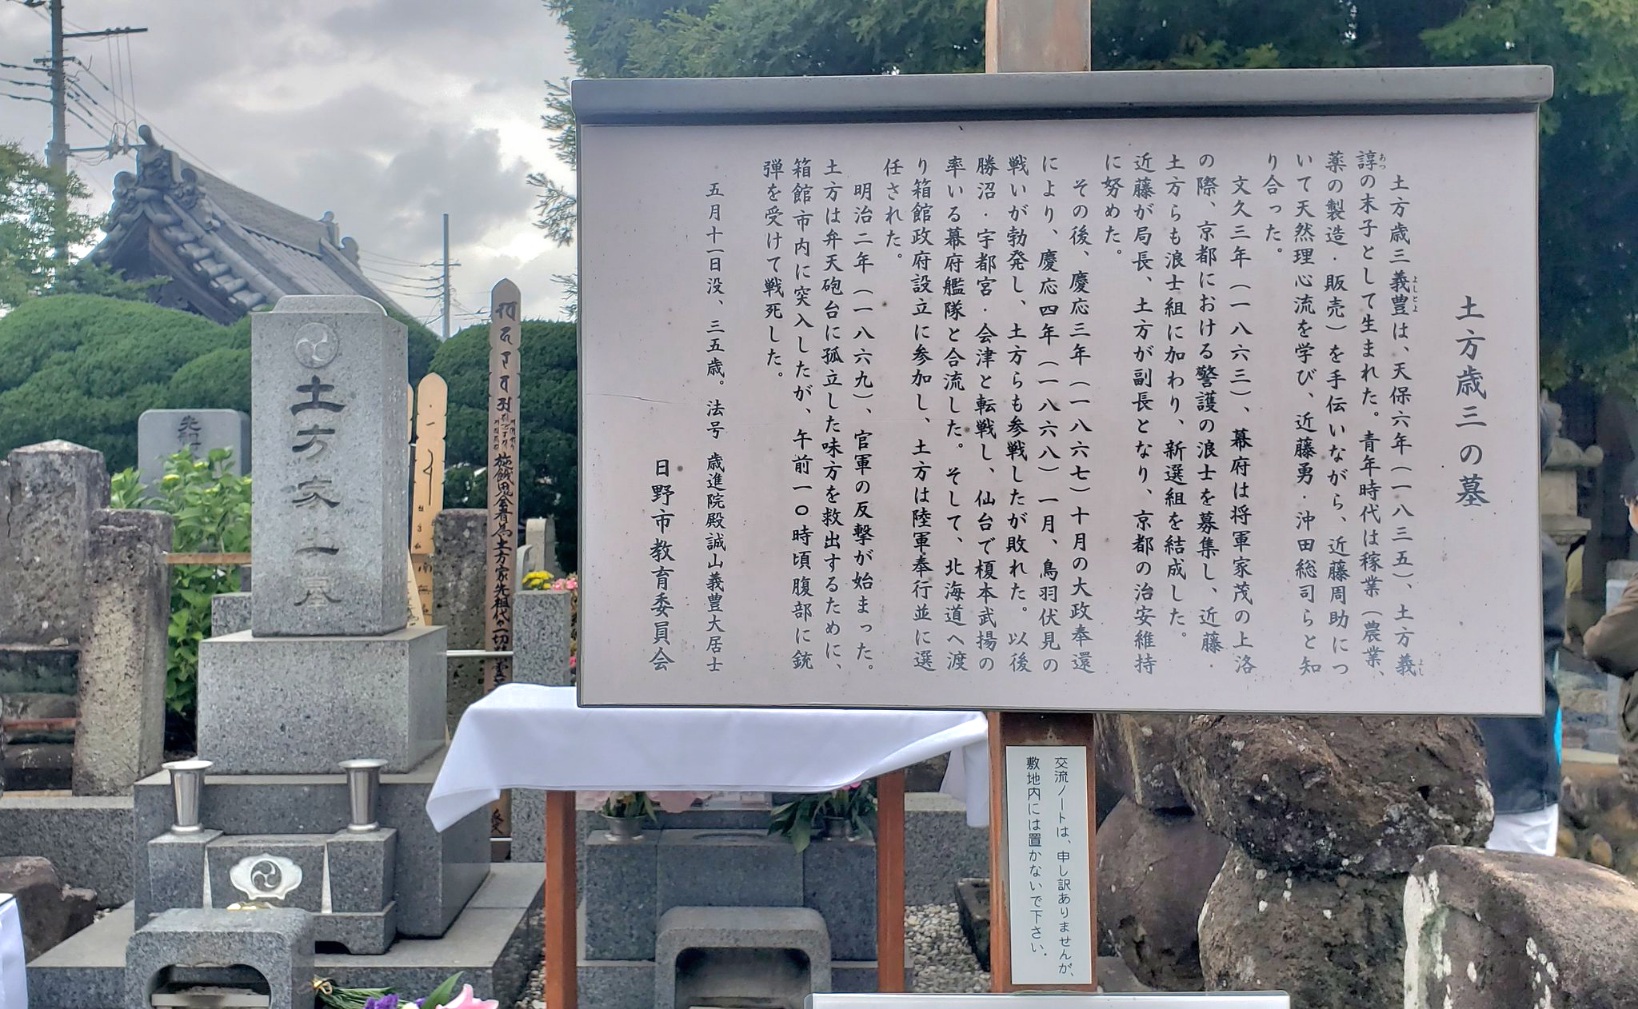 土方歳三の墓
土方歳三義豊は、天保六年（一八三五）、土方義
よしとよ
よし
諄の末子として生まれた。青年時代は稼業（農業、
あつ
薬の製造・販売）を手伝いながら、近藤周助につ
いて天然理心流を学び、近藤勇・沖田総司らと知
り合った。
文久三年（一八六三）、幕府は将軍家茂の上洛
の際、京都における警護の浪士を募集し、近藤・
土方らも浪士組に加わり、新選組を結成した。
近藤が局長、土方が副長となり、京都の治安維持
に努めた。
その後、慶応三年（一八六七）十月の大政奉還
により、慶応四年（一八六八）一月、鳥羽伏見の
戦いが勃発し、土方らも参戦したが敗れた。以後
勝沼・宇都宮・会津と転戦し、仙台で榎本武揚の
率いる幕府艦隊と合流した。そして、北海道へ渡
り箱館政府設立に参加し、土方は陸軍奉行並に選
任された。
明治二年（一八六九）、官軍の反撃が始まった。
土方は弁天砲台に孤立した味方を救出するために、
箱館市内に突入したが、午前一〇時頃腹部に銃
弾を受けて戦死した。
五月十一日没、三五歳。法号 歳進院殿誠山義豊大居士
日野市教育委員会
交流ノートは、申し訳ありませんが、
敷地内には置かないで下さい。
土方家之墓